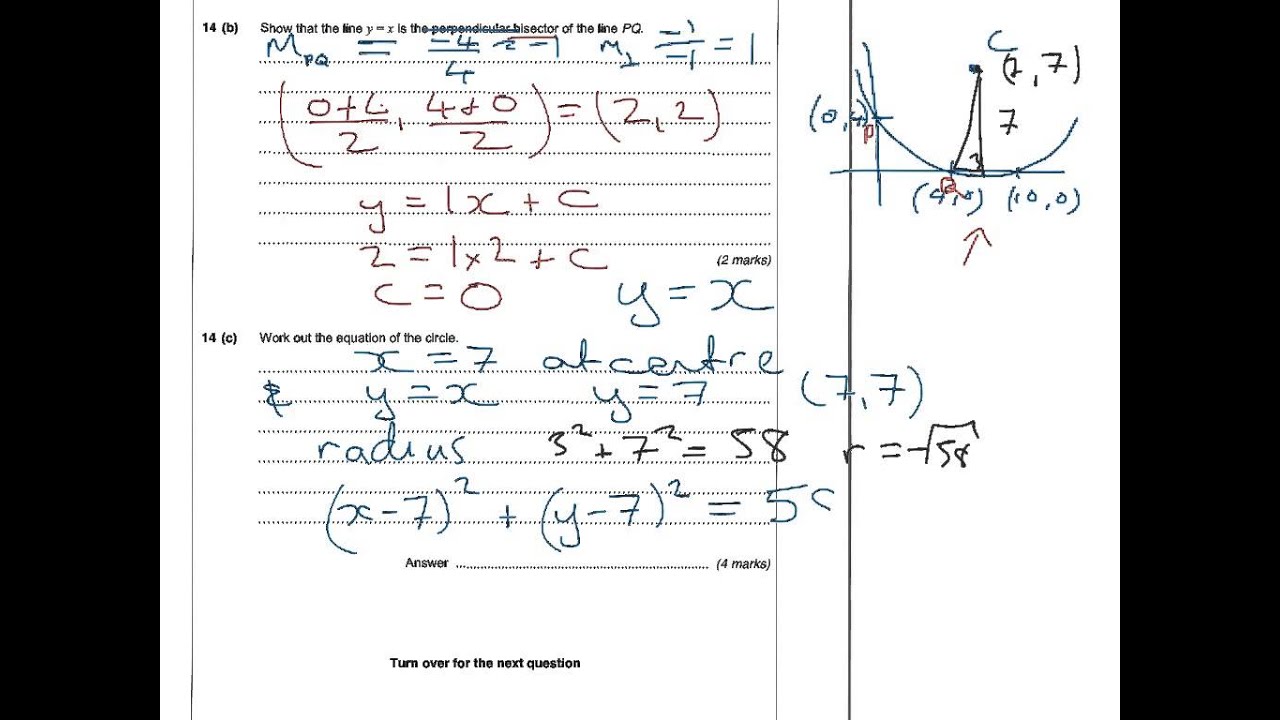 14 (b) Show that the line y = x is the perpendicular bisector of the line PQ.
M_PQ = -4/4 = -1 m_⊥ = -1/-1 = 1
((0+4)/2, (4+0)/2) = (2, 2)
y = 1x + c
2 = 1 × 2 + c
(2 marks)
c = 0 y = x
14 (c) Work out the equation of the circle.
x = 7 at centre
& y = x y = 7 (7, 7)
radius 3² + 7² = 58 r = √58
(x - 7)² + (y - 7)² = 5
Answer (4 marks)
Turn over for the next question
C
(7, 7)
(0, 4)
P
7
3
Q
(4, 0) (10, 0)